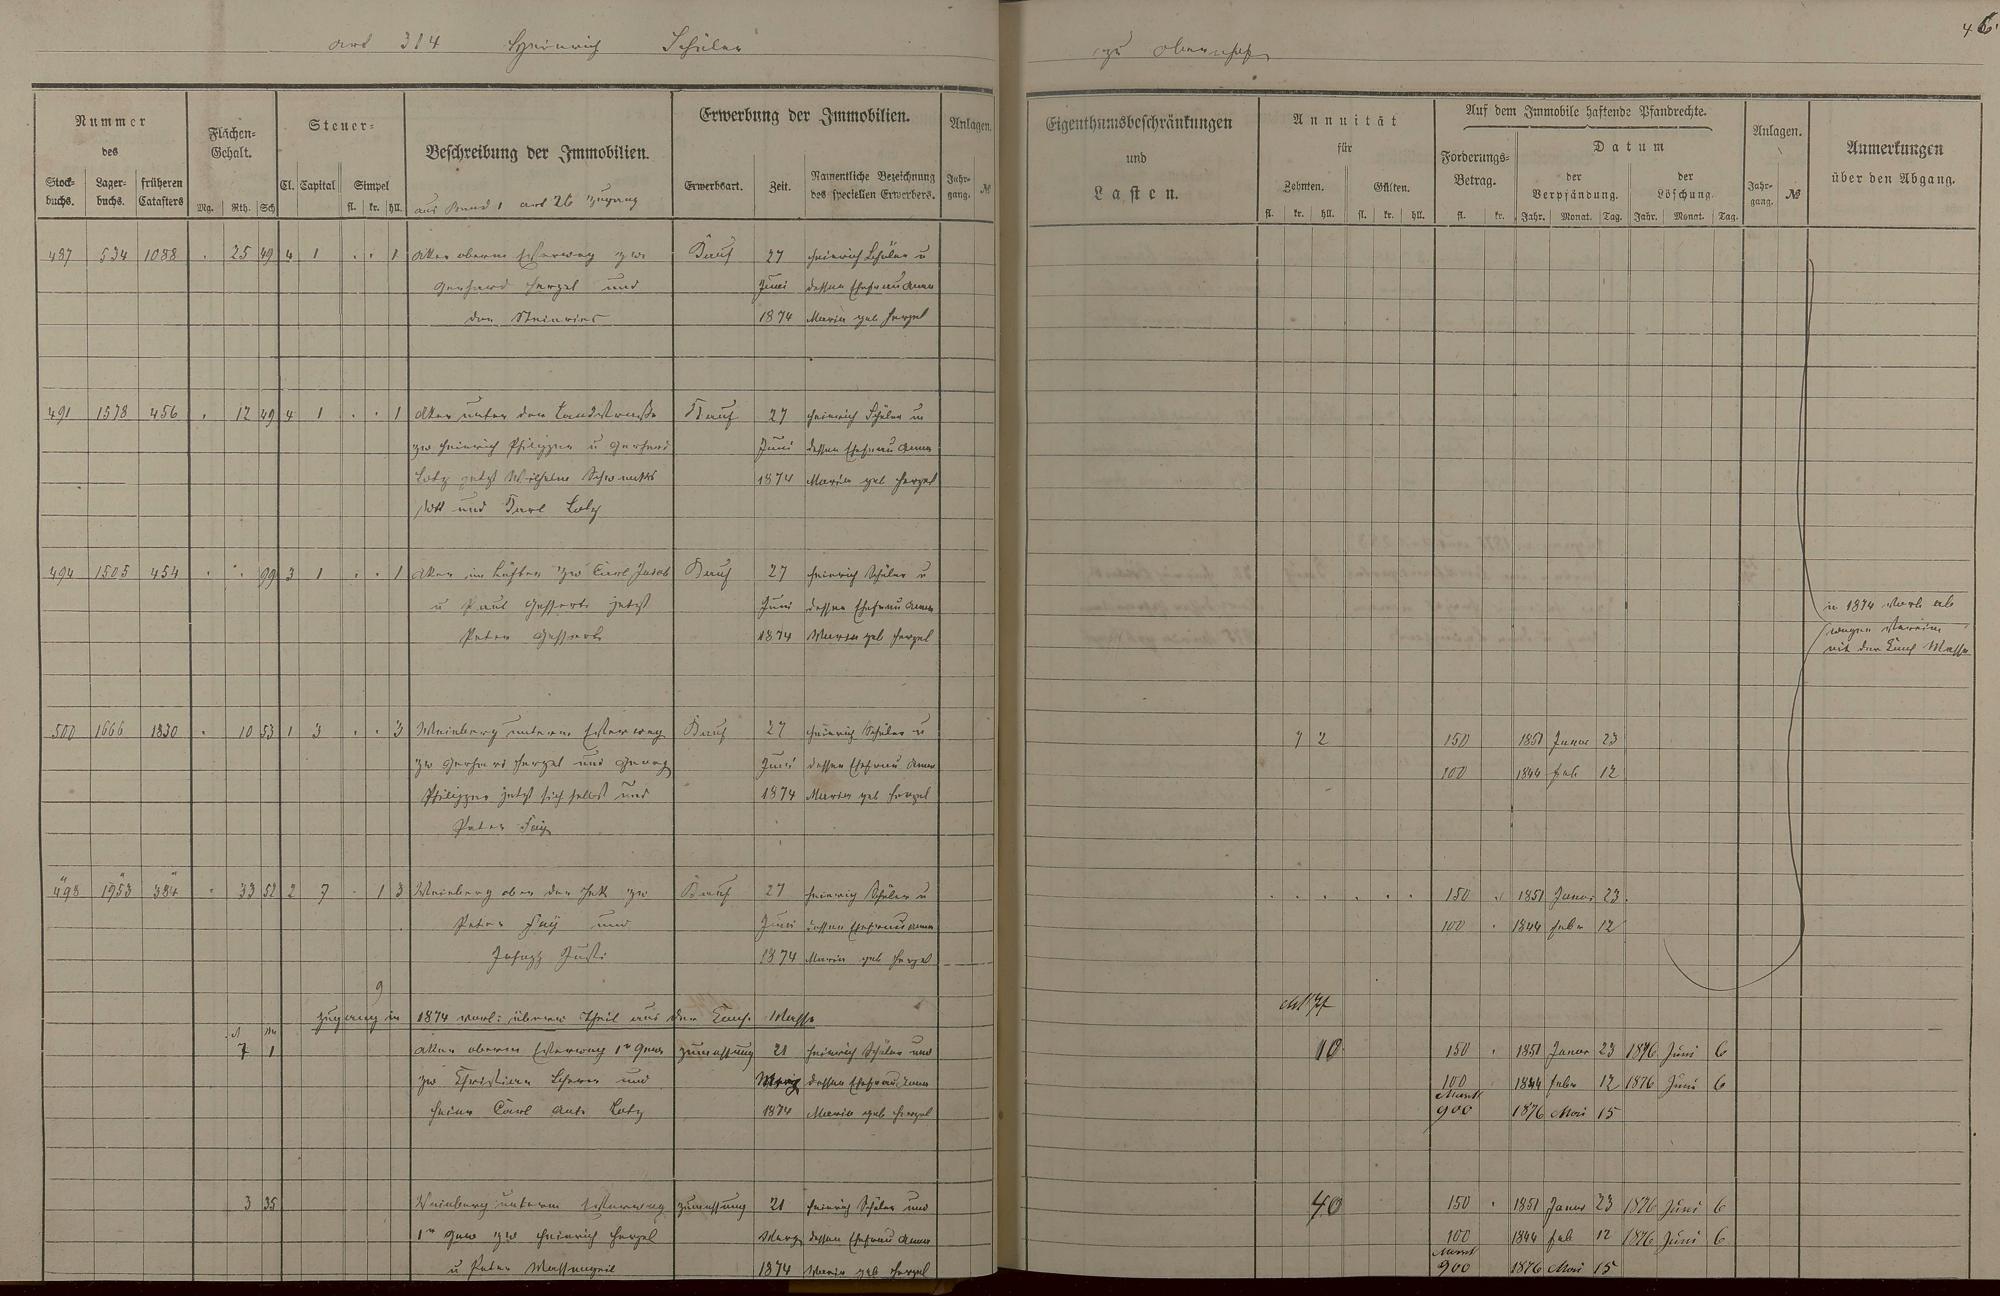 art 314 Heinrich Schüler
zu Obernhof
46.
Nummer
des
Stock-
buchs.
Lager-
buchs.
früheren
Catasters
Flächen-
Gehalt.
Mg. Rth. Sch
Steuer-
Cl. Capital Simpel
fl. kr. hll.
Beschreibung der Immobilien.
aus Band 1 art 26 Zugang
Erwerbung der Immobilien.
Erwerbsart. Zeit.
Namentliche Bezeichnung
des speciellen Erwerbers.
Anlagen.
Jahr-
gang. №
Eigenthumsbeschränkungen
und
Lasten.
Annuität
für
Zehnten. Gülten.
fl. kr. hll. fl. kr. hll.
Auf dem Immobile haftende Pfandrechte.
Forderungs-
Betrag.
fl. kr.
Datum
der
Verpfändung.
Jahr. Monat. Tag.
der
Löschung.
Jahr. Monat. Tag.
Anlagen.
Jahr-
gang. №
Anmerkungen
über den Abgang.
487 534 1088 . 25 49 4 1 . . 1 Acker oberm zw Kauf 27 Heinrich Schüler u
Gerhard Hergel und Juni dessen Ehefrau Anna
den 1874 Maria geb Hergel
491 1578 456 . 12 49 4 1 . . 1 Acker unter der Landstraße Kauf 27 Heinrich Schüler u
zw Heinrich Philipper u Gerhard Juni dessen Ehefrau Anna
Lotz jetzt Wilhelm 1874 Maria geb Hergel
und Karl Lotz
494 1505 454 . . 99 3 1 . . 1 Acker im zw Carl Jacob Kauf 27 Heinrich Schüler u
u Paul jetzt Juni dessen Ehefrau Anna
Peter 1874 Maria geb Hergel
in 1874
wegen
mit der Masse
500 1666 1830 . 10 53 1 3 . . 3 Weinberg unterm Kauf 27 Heinrich Schüler u 7 2 150 1851 Januar 23
zw Gerhard Hergel und Georg Juni dessen Ehefrau Anna 100 1844 Feb 12
Philipper jetzt sich selbst und 1874 Maria geb Hergel
Peter Fay
498 1953 384 . 33 52 2 7 . 1 3 Weinberg ober der zw Kauf 27 Heinrich Schüler u 150 1851 Januar 23.
Peter Fay und Juni dessen Ehefrau Anna 100 . 1844 Febr 12
Joseph Justi 1874 Maria geb Hergel
9
Zugang in 1874 Theil aus der Masse
7 1 Acker oberm 1r Gew Zumessung 21 Heinrich Schüler und 10 150 . 1851 Januar 23 1876 Juni 6
zw Christian und März dessen Ehefrau Anna 100 1844 Febr 12 1876 Juni 6
Carl Lotz 1874 Maria geb Hergel Mark
900 1876 Mai 15
3 35 Weinberg unterm Zumessung 21 Heinrich Schüler und 40 150 . 1851 Januar 23 1876 Juni 6
1r Gew zw Heinrich Hergel März dessen Ehefrau Anna 100 1844 Feb 12 1876 Juni 6
u Peter 1874 Maria geb Hergel Mark
900 1876 Mai 15